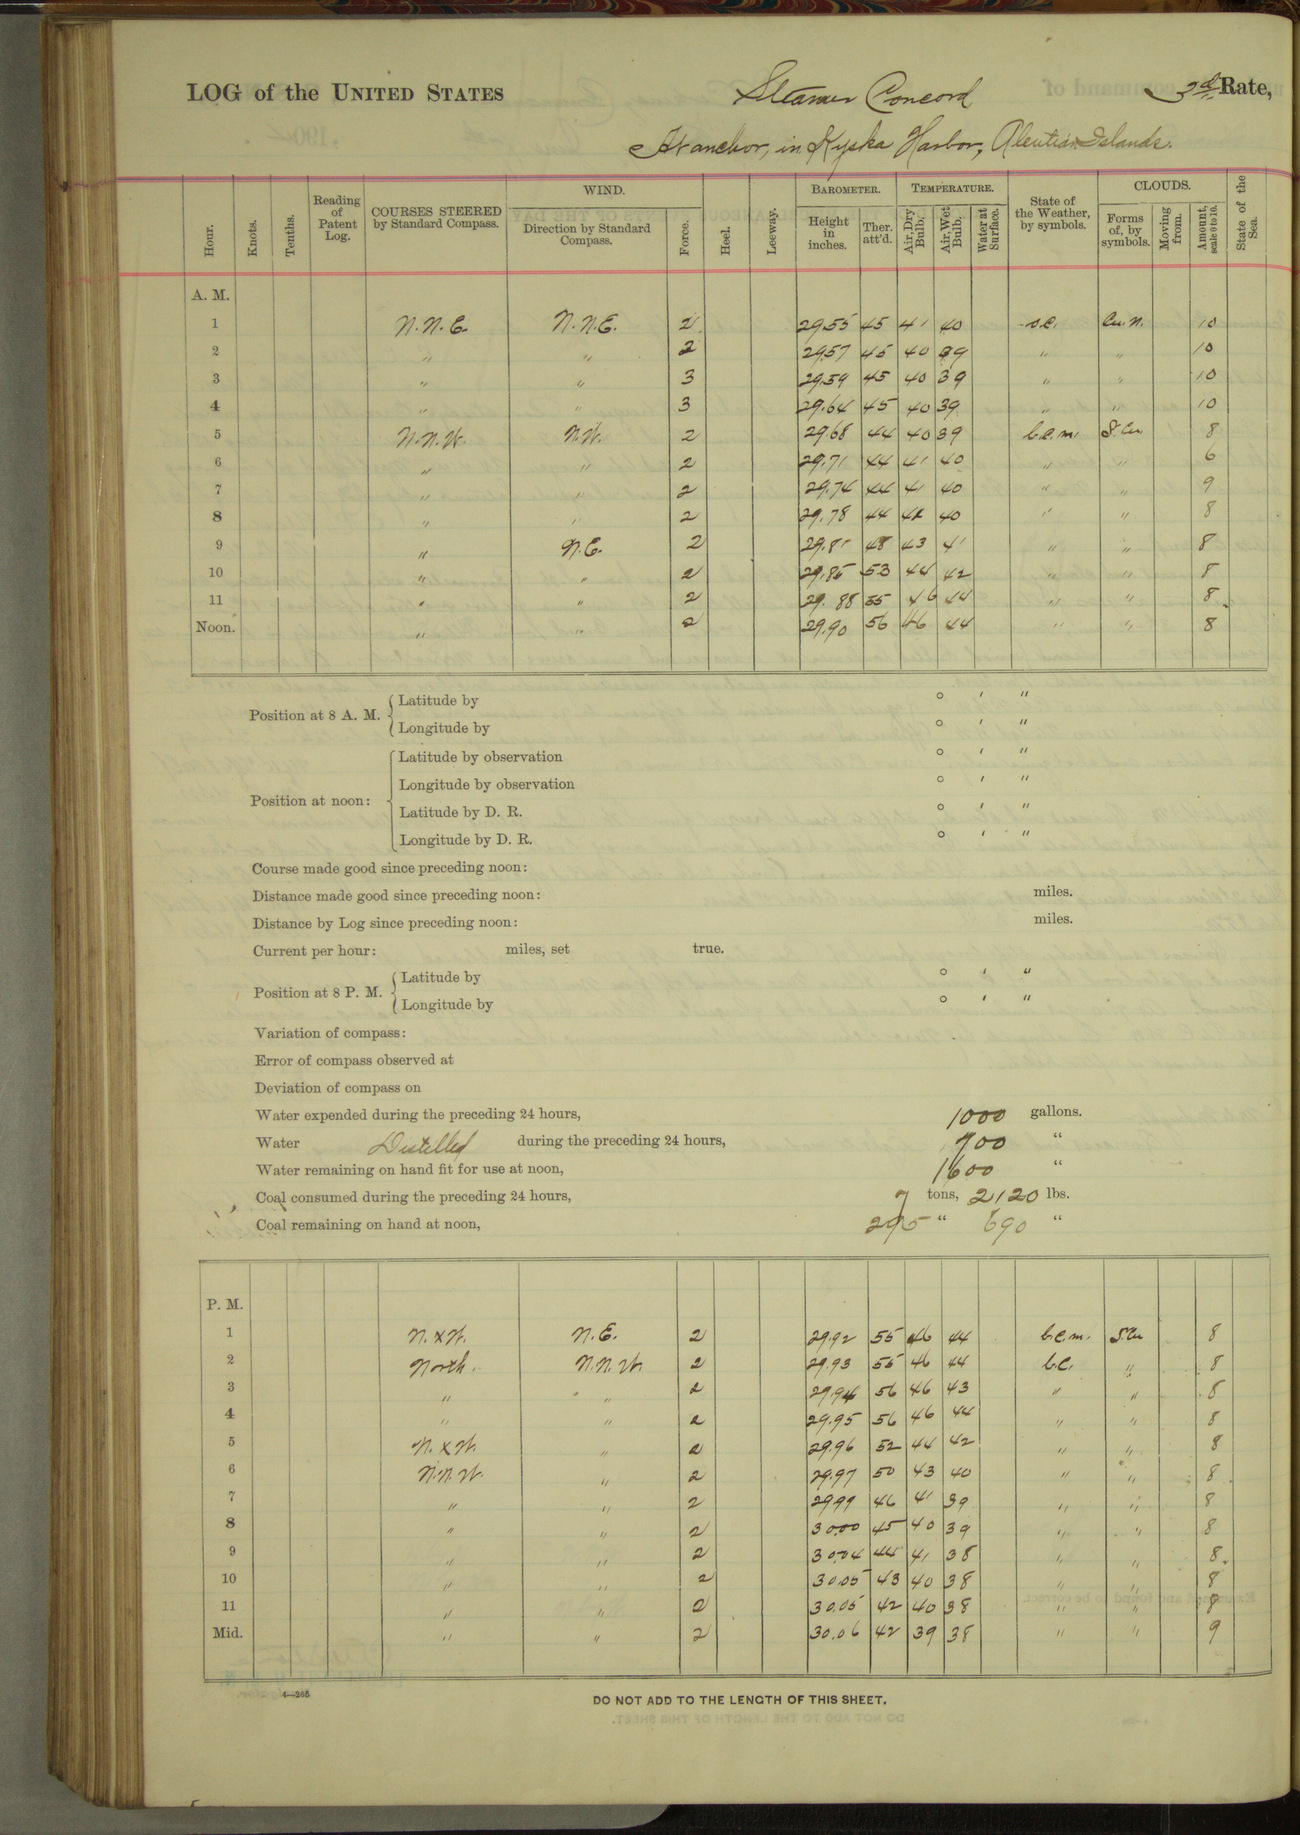 LOG of the UNITED STATES Steamer Concord 3rd Rate,
At anchor, in Kyska Harbor, Aleutian Islands.
Hour. Knots. Tenths. Reading of Patent Log. COURSES STEERED by Standard Compass. WIND. Direction by Standard Compass. Force. Heel. Leeway. BAROMETER. Height in inches. Ther. att'd. TEMPERATURE. Air, Dry Bulb. Air, Wet Bulb. Water at Surface. State of the Weather, by symbols. CLOUDS. Forms of, by symbols. Moving from. Amount, scale 0 to 10. State of the Sea.
A. M.
1 N.N.E. N.N.E. 2 29.55 45 41 40 o.c. Cu.N. 10
2 " " 2 29.57 45 40 39 " " 10
3 " " 3 29.59 45 40 39 " " 10
4 " " 3 29.64 45 40 39 " " 10
5 N.N.W. N.W. 2 29.68 44 40 39 b.c.m. S.Cu. 8
6 " " 2 29.71 44 41 40 " " 6
7 " " 2 29.74 44 41 40 " " 9
8 " " 2 29.78 44 42 40 " " 8
9 " N.E. 2 29.81 48 43 41 " " 8
10 " " 2 29.85 53 44 42 " " 8
11 " " 2 29.88 55 46 44 " " 8
Noon. " " 2 29.90 56 46 44 " " 8
Position at 8 A. M. Latitude by ° ' "
Longitude by ° ' "
Position at noon: Latitude by observation ° ' "
Longitude by observation ° ' "
Latitude by D. R. ° ' "
Longitude by D. R. ° ' "
Course made good since preceding noon:
Distance made good since preceding noon: miles.
Distance by Log since preceding noon: miles.
Current per hour: miles, set true.
Position at 8 P. M. Latitude by ° ' "
Longitude by ° ' "
Variation of compass:
Error of compass observed at
Deviation of compass on
Water expended during the preceding 24 hours, 1000 gallons.
Water Distilled during the preceding 24 hours, 700 "
Water remaining on hand fit for use at noon, 1600 "
Coal consumed during the preceding 24 hours, 7 tons, 2120 lbs.
Coal remaining on hand at noon, 295 " 690 "
P. M.
1 N.xW. N.E. 2 29.92 55 46 44 b.c.m. S.Cu 8
2 North. N.N.W. 2 29.93 55 46 44 b.c. " 8
3 " " 2 29.94 56 46 43 " " 8
4 " " 2 29.95 56 46 44 " " 8
5 N.xW. " 2 29.96 52 44 42 " " 8
6 N.N.W. " 2 29.97 50 43 40 " " 8
7 " " 2 29.99 46 41 39 " " 8
8 " " 2 30.00 45 40 39 " " 8
9 " " 2 30.04 44 41 38 " " 8
10 " " 2 30.05 43 40 38 " " 8
11 " " 2 30.05 42 40 38 " " 8
Mid. " " 2 30.06 42 39 38 " " 9
4—266
DO NOT ADD TO THE LENGTH OF THIS SHEET.